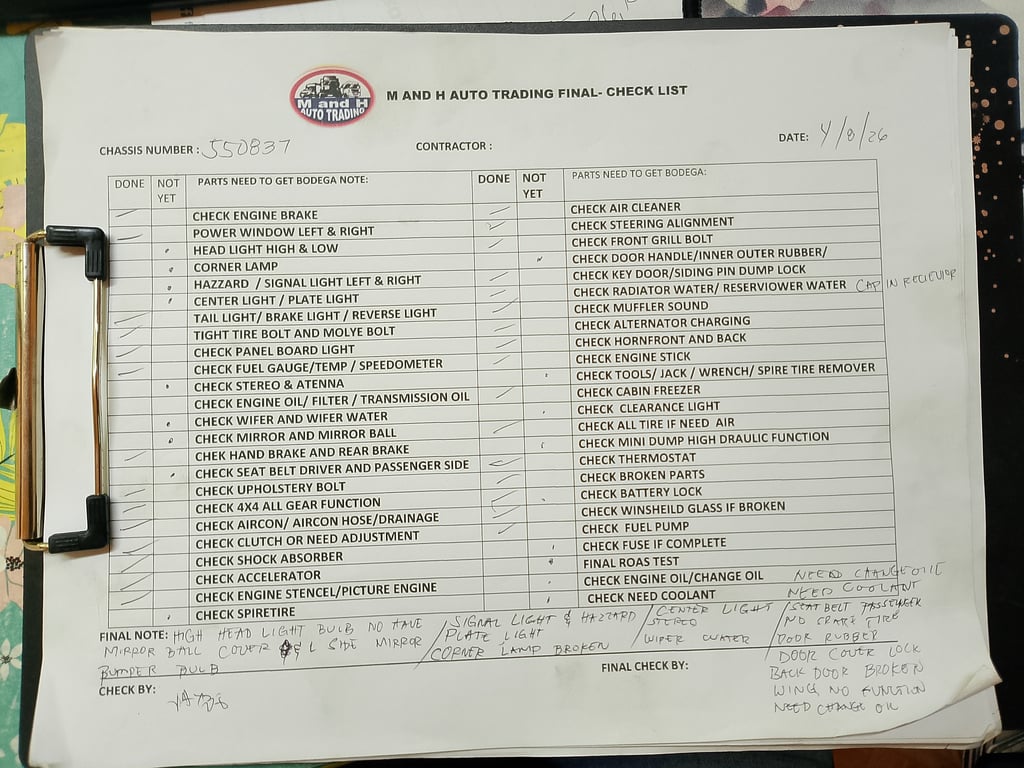 M and H
AUTO TRADING
M AND H AUTO TRADING FINAL- CHECK LIST
CHASSIS NUMBER : 550837
CONTRACTOR :
DATE: 4/8/26
DONE NOT YET PARTS NEED TO GET BODEGA NOTE: DONE NOT YET PARTS NEED TO GET BODEGA:
CHECK ENGINE BRAKE
POWER WINDOW LEFT & RIGHT
HEAD LIGHT HIGH & LOW
CORNER LAMP
HAZZARD / SIGNAL LIGHT LEFT & RIGHT
CENTER LIGHT / PLATE LIGHT
TAIL LIGHT/ BRAKE LIGHT / REVERSE LIGHT
TIGHT TIRE BOLT AND MOLYE BOLT
CHECK PANEL BOARD LIGHT
CHECK FUEL GAUGE/TEMP / SPEEDOMETER
CHECK STEREO & ATENNA
CHECK ENGINE OIL/ FILTER / TRANSMISSION OIL
CHECK WIFER AND WIFER WATER
CHECK MIRROR AND MIRROR BALL
CHEK HAND BRAKE AND REAR BRAKE
CHECK SEAT BELT DRIVER AND PASSENGER SIDE
CHECK UPHOLSTERY BOLT
CHECK 4X4 ALL GEAR FUNCTION
CHECK AIRCON/ AIRCON HOSE/DRAINAGE
CHECK CLUTCH OR NEED ADJUSTMENT
CHECK SHOCK ABSORBER
CHECK ACCELERATOR
CHECK ENGINE STENCEL/PICTURE ENGINE
CHECK SPIRETIRE
CHECK AIR CLEANER
CHECK STEERING ALIGNMENT
CHECK FRONT GRILL BOLT
CHECK DOOR HANDLE/INNER OUTER RUBBER/
CHECK KEY DOOR/SIDING PIN DUMP LOCK
CHECK RADIATOR WATER/ RESERVIOWER WATER CAP IN RECIEVIOR
CHECK MUFFLER SOUND
CHECK ALTERNATOR CHARGING
CHECK HORNFRONT AND BACK
CHECK ENGINE STICK
CHECK TOOLS/ JACK / WRENCH/ SPIRE TIRE REMOVER
CHECK CABIN FREEZER
CHECK CLEARANCE LIGHT
CHECK ALL TIRE IF NEED AIR
CHECK MINI DUMP HIGH DRAULIC FUNCTION
CHECK THERMOSTAT
CHECK BROKEN PARTS
CHECK BATTERY LOCK
CHECK WINSHEILD GLASS IF BROKEN
CHECK FUEL PUMP
CHECK FUSE IF COMPLETE
FINAL ROAS TEST
CHECK ENGINE OIL/CHANGE OIL NEED CHANGE OIL
CHECK NEED COOLANT NEED COOLANT
FINAL NOTE: HIGH HEAD LIGHT BULB NO HAVE
MIRROR BALL COVER & L SIDE MIRROR
BUMPER BULB
/ SIGNAL LIGHT & HAZZARD
PLATE LIGHT
CORNER LAMP BROKEN
/ CENTER LIGHT
STEREO
WIPER WATER
/ SEAT BELT PASSENGER
NO SPARE TIRE
DOOR RUBBER
DOOR COVER LOCK
BACK DOOR BROKEN
WING NO FUNCTION
NEED CHANGE OIL
CHECK BY:
FINAL CHECK BY: